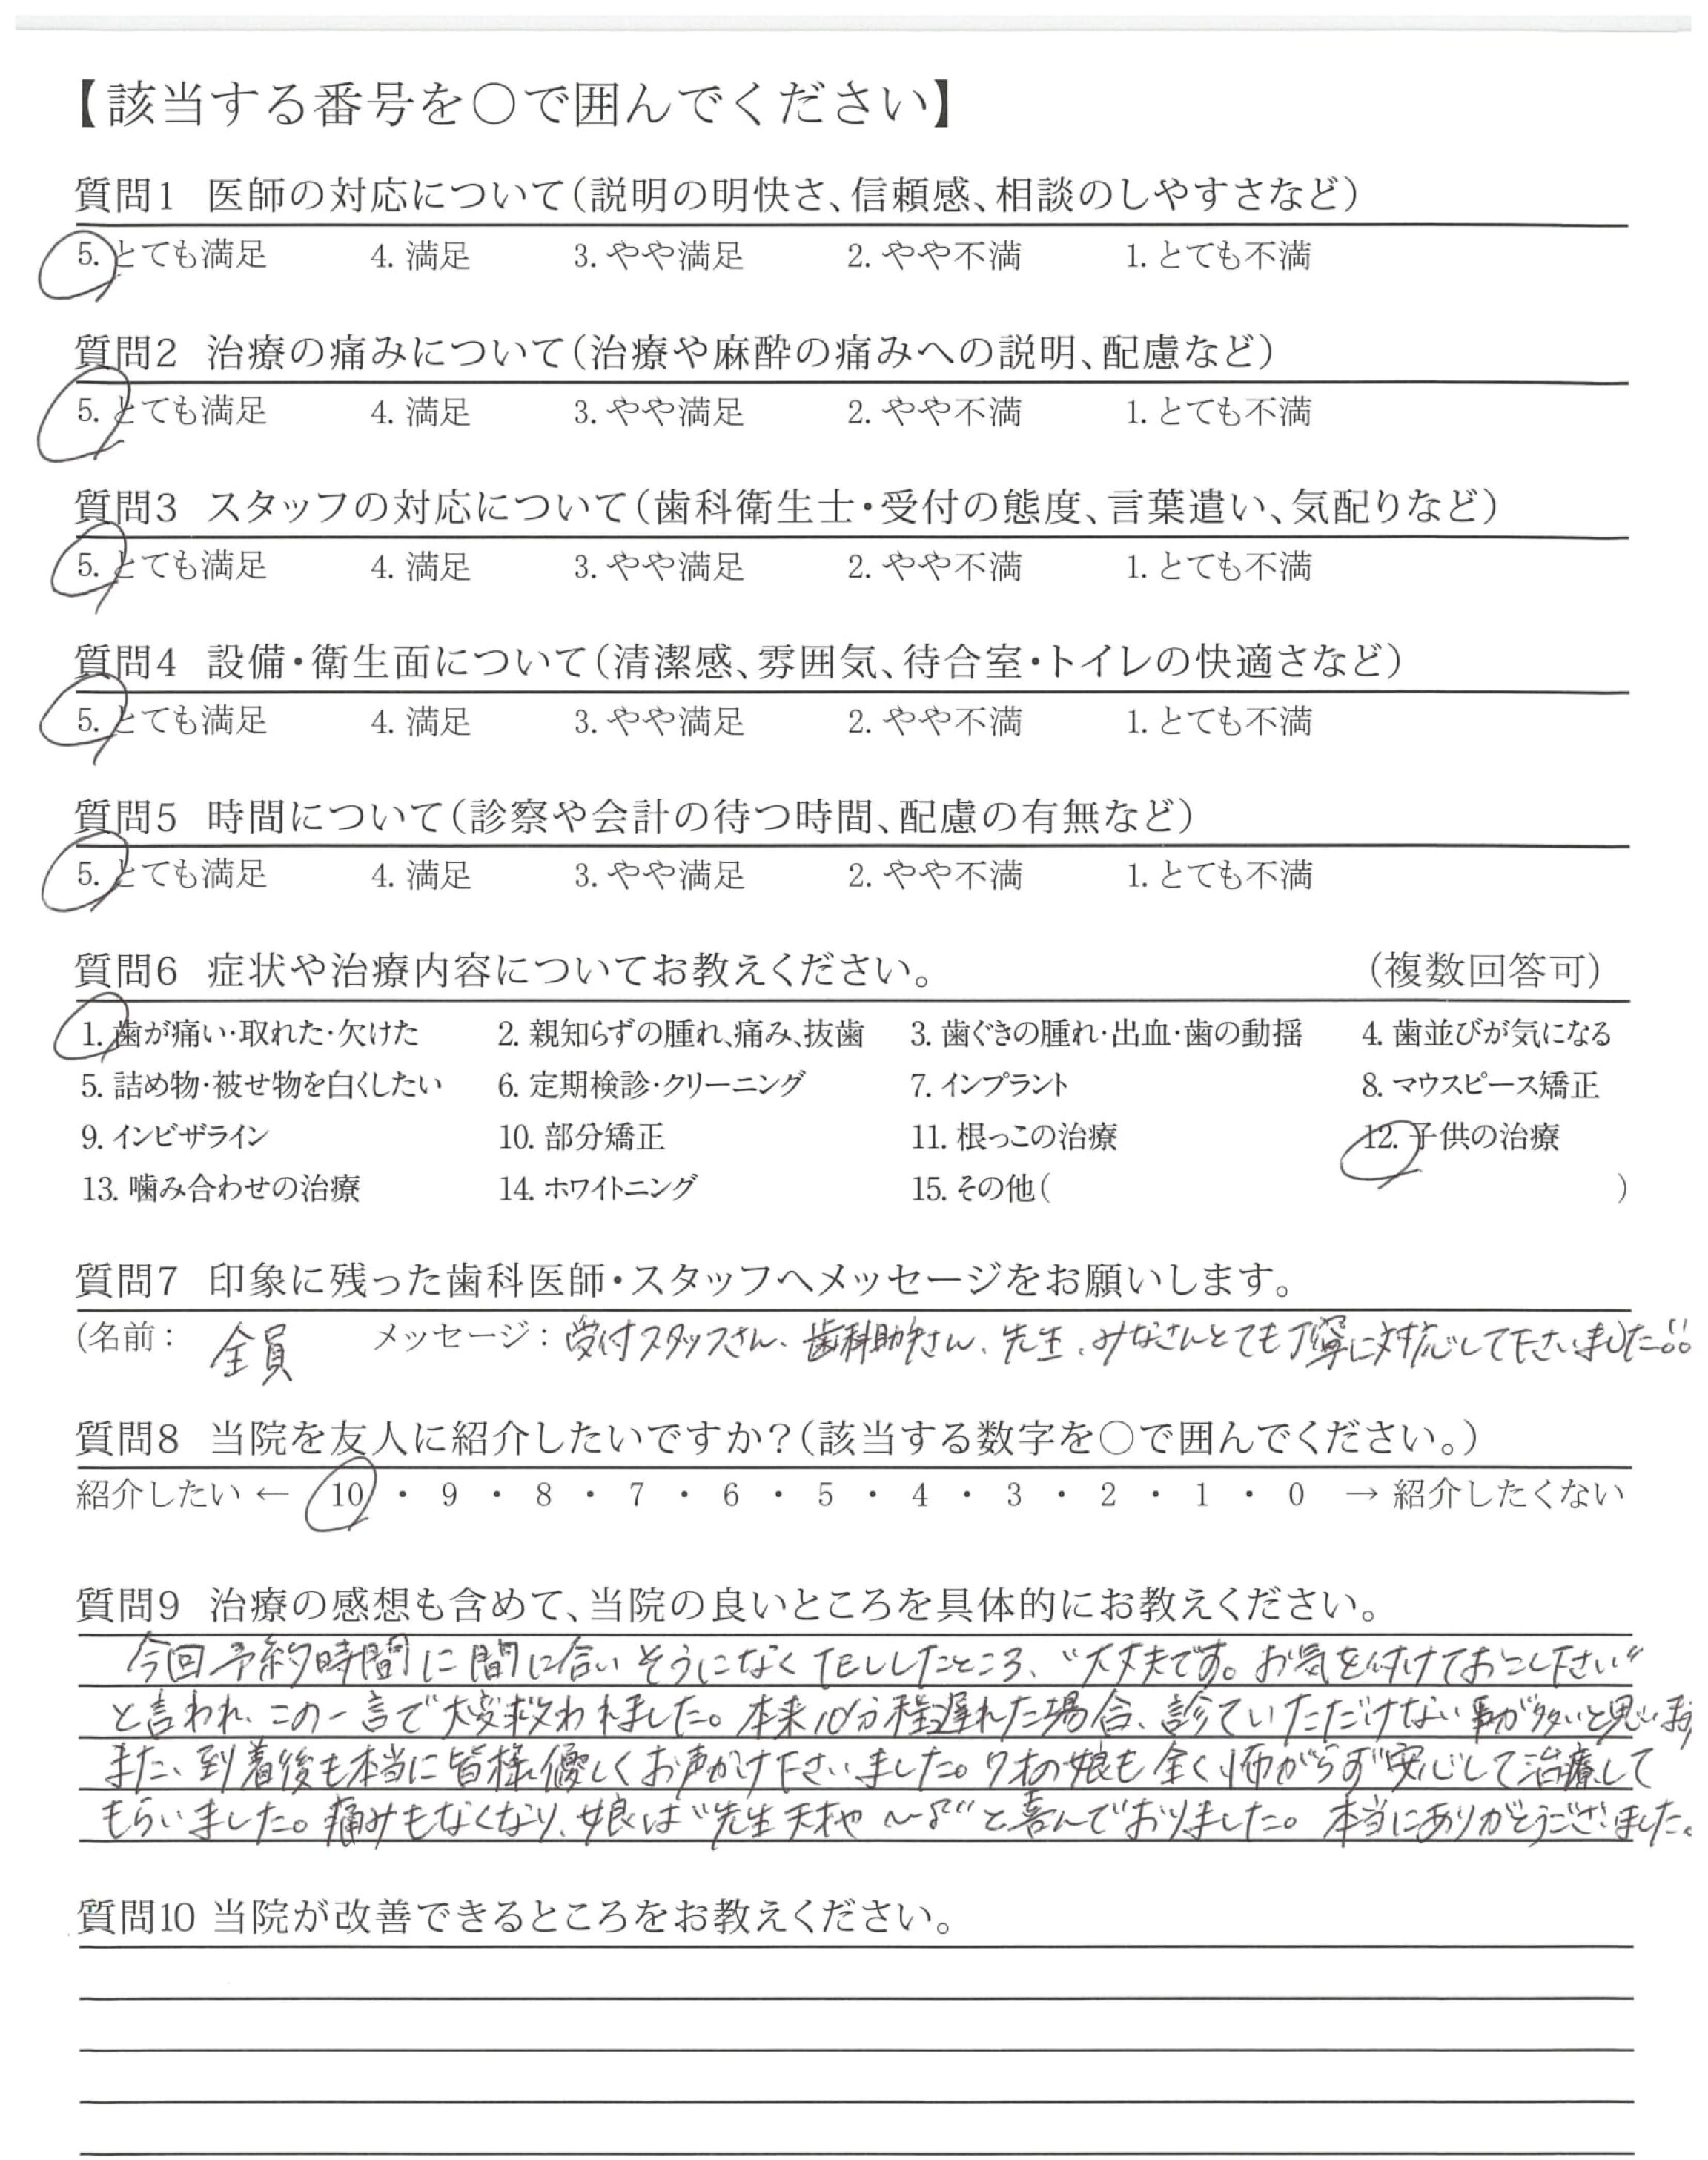 【該当する番号を○で囲んでください】
質問1 医師の対応について(説明の明快さ、信頼感、相談のしやすさなど)
5. とても満足 4. 満足 3. やや満足 2. やや不満 1. とても不満
質問2 治療の痛みについて(治療や麻酔の痛みへの説明、配慮など)
5. とても満足 4. 満足 3. やや満足 2. やや不満 1. とても不満
質問3 スタッフの対応について(歯科衛生士・受付の態度、言葉遣い、気配りなど)
5. とても満足 4. 満足 3. やや満足 2. やや不満 1. とても不満
質問4 設備・衛生面について(清潔感、雰囲気、待合室・トイレの快適さなど)
5. とても満足 4. 満足 3. やや満足 2. やや不満 1. とても不満
質問5 時間について(診察や会計の待つ時間、配慮の有無など)
5. とても満足 4. 満足 3. やや満足 2. やや不満 1. とても不満
質問6 症状や治療内容についてお教えください。 (複数回答可)
1. 歯が痛い・取れた・欠けた 2. 親知らずの腫れ、痛み、抜歯 3. 歯ぐきの腫れ・出血・歯の動揺 4. 歯並びが気になる
5. 詰め物・被せ物を白くしたい 6. 定期検診・クリーニング 7. インプラント 8. マウスピース矯正
9. インビザライン 10. 部分矯正 11. 根っこの治療 12. 子供の治療
13. 噛み合わせの治療 14. ホワイトニング 15. その他( )
質問7 印象に残った歯科医師・スタッフへメッセージをお願いします。
(名前: 全員 メッセージ: 受付スタッフさん、歯科助手さん、先生、みなさんとても丁寧に対応して下さいました!!
質問8 当院を友人に紹介したいですか?(該当する数字を○で囲んでください。)
紹介したい ← 10 ・ 9 ・ 8 ・ 7 ・ 6 ・ 5 ・ 4 ・ 3 ・ 2 ・ 1 ・ 0 → 紹介したくない
質問9 治療の感想も含めて、当院の良いところを具体的にお教えください。
今回予約時間に間に合いそうになくTELしたところ、"大丈夫です。お気を付けておこし下さい"
と言われ、この一言で大変救われました。本来10分程遅れた場合、診ていただけない事が多いと思います
また、到着後も本当に皆様優しくお声かけ下さいました。7才の娘も全く怖がらず安心して治療して
もらいました。痛みもなくなり、娘は"先生天才や〜!!"と喜んでおりました。本当にありがとうございました。
質問10 当院が改善できるところをお教えください。